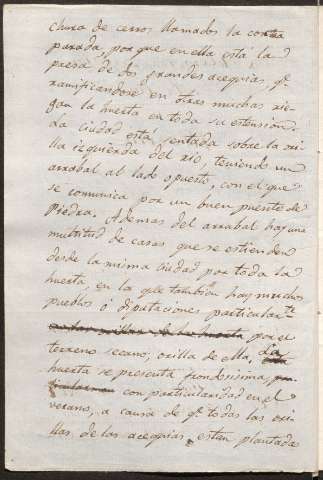 chura de cerros llamados la contra
parada, porque en ella está la
presa de dos grandes acequias q.e
ramificandose en otras muchas rie-
gan la huerta en toda su extension.
La ciudad está sentada sobre la ori-
lla izquierda del rio, teniendo un
arrabal al lado opuesto, con el que
se comunica por un buen puente de
piedra. Ademas del arrabal hay una
multitud de casas, que se estienden
desde la misma ciudad por toda la
huerta, en la q.le tambien hay muchos
pueblos ó diputaciones particularm.te
por el
terreno secano, orilla de ella. La
huerta se presenta frondosisima,
con particularidad en el
verano, a causa de q.e todas las ori-
llas de las acequias estan plantadas